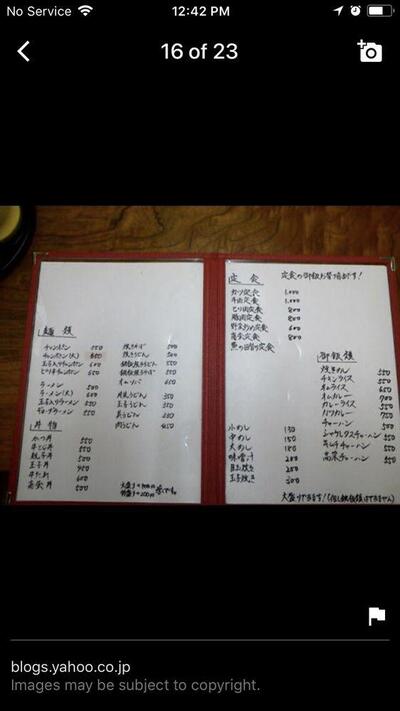 No Service 12:42 PM
16 of 23
麺類
チャンポン 550
チャンポン(大) 650
玉子入りチャンポン 600
ピリ辛チャンポン 650
ラーメン 500
ラーメン(大) 600
玉子入りラーメン 550
ギョーザラーメン 550
焼きそば 500
焼きうどん 500
鉄板焼きうどん 550
鉄板焼きそば 550
オムソバ 650
玉子うどん 350
肉うどん 450
丼物
かつ丼 550
牛とじ丼 550
親子丼 500
玉子丼 450
600
高菜丼 500
定食 定食の御飯お替り自由です!
カツ定食 1,000
牛肉定食 1,000
とり肉定食 800
豚肉定食 800
野菜炒め定食 600
高菜定食 800
魚の日替り定食
御飯類
焼きめし 550
チキンライス 550
オムライス 650
オムカレー 700
カレーライス 550
カツカレー 750
チャーハン 500
シャクレタスチャーハン 550
キムチチャーハン 550
高菜チャーハン 550
小めし 130
中めし 150
大めし 180
味噌汁 200
目玉焼き 200
玉子焼き 300
大盛りできます!
blogs.yahoo.co.jp
Images may be subject to copyright.